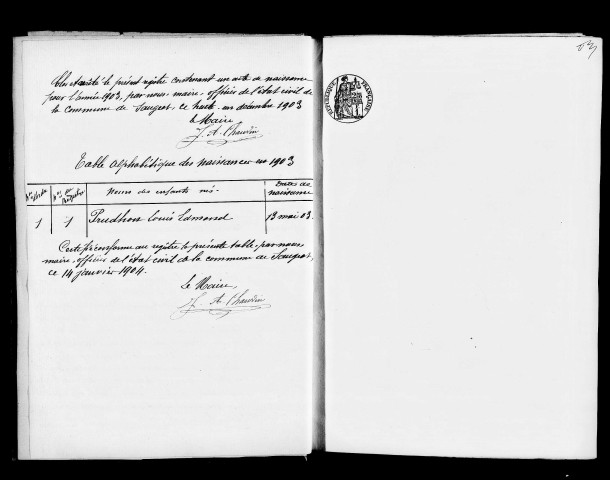 Clos et arrêté le présent registre contenant un acte de naissance
pour l'année 1903, par nous, maire, officier de l'état civil de
la commune de Saugeot, ce trente-un décembre 1903
Le Maire
J. A. Chauvin
Table alphabétique des naissances en 1903
Nos d'ordre Nos du registre Noms des enfants nés Dates de naissance
1 1 Prudhon Louis Edmond 13 mai 03
Certifié conforme au registre la présente table, par nous,
maire, officier de l'état civil de la commune de Saugeot,
ce 14 janvier 1904.
Le Maire,
J. A. Chauvin
RÉPUBLIQUE FRANÇAISE